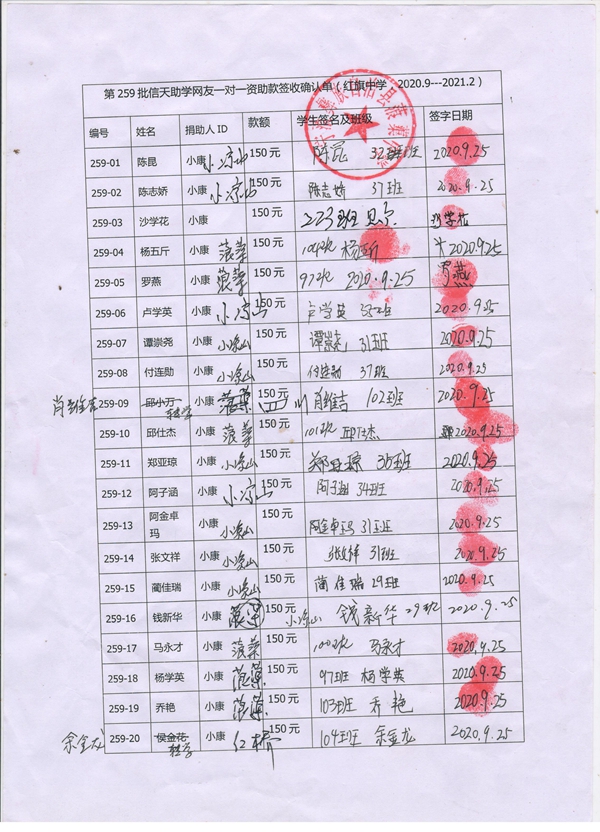 第259批信天助学网友一对一资助款签收确认单（红旗中学，2020.9---2021.2）
编号 姓名 捐助人ID 款额 学生签名及班级 签字日期
259-01 陈昆 小康 小凉山 150元 陈昆 32班 2020.9.25
259-02 陈志娇 小康 小凉山 150元 陈志娇 37班 2020.9.25
259-03 沙学花 小康 150元 223班 沙学花
259-04 杨五斤 小康 菠菜 150元 104班 杨五斤 2020.9.25
259-05 罗燕 小康 菠菜 150元 97班 2020.9.25 罗燕
259-06 卢学英 小康 小凉山 150元 卢学英 2020.9.25
259-07 谭崇尧 小康 小凉山 150元 谭崇尧 31班 2020.9.25
259-08 付连勋 小康 小凉山 150元 付连勋 37班 2020.9.25
肖维吉 259-09 邱小万 转学 小康 150元 肖维吉 102班 2020.9.25
259-10 邱仕杰 小康 菠菜 150元 101班 邱仕杰 2020.9.25
259-11 郑亚琼 小康 小凉山 150元 郑亚琼 36班 2020.9.25
259-12 阿子涵 小康 小凉山 150元 阿子涵 34班 2020.9.25
259-13 阿金卓玛 小康 小凉山 150元 阿金卓玛 31班 2020.9.25
259-14 张文祥 小康 小凉山 150元 张文祥 31班 2020.9.25
259-15 蔺佳瑞 小康 小凉山 150元 蔺佳瑞 29班 2020.9.25
259-16 钱新华 小康 150元 小凉山 钱新华 29班 2020.9.25
259-17 马永才 小康 菠菜 150元 100班 马永才 2020.9.25
259-18 杨学英 小康 菠菜 150元 97班 杨学英 2020.9.25
259-19 乔艳 小康 菠菜 150元 103班 乔艳 2020.9.25
余金龙 259-20 侯金花 转学 小康 红桥 150元 104班 余金龙 2020.9.25